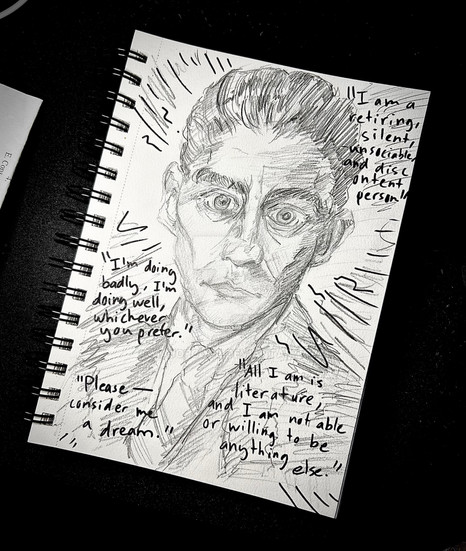 "I am a
retiring,
silent,
unsociable,
and disc
ontent
person"
"I'm doing
badly, I'm
doing well,
whichever
you prefer."
"Please —
consider me
a dream."
"All I am is
literature,
and I am not able
or willing to be
anything
else."